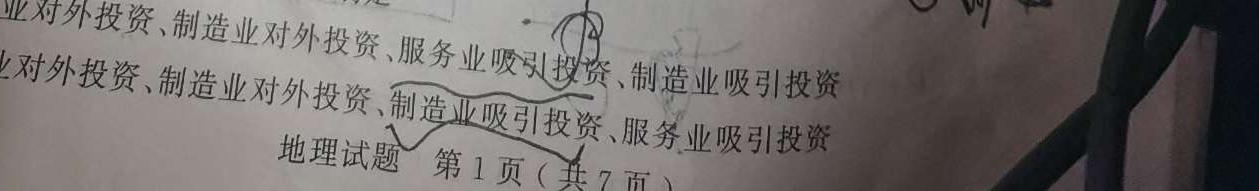 业对外投资、制造业对外投资、服务业吸引投资、制造业吸引投资
业对外投资、制造业对外投资、制造业吸引投资、服务业吸引投资
地理试题 第1页(共7页)